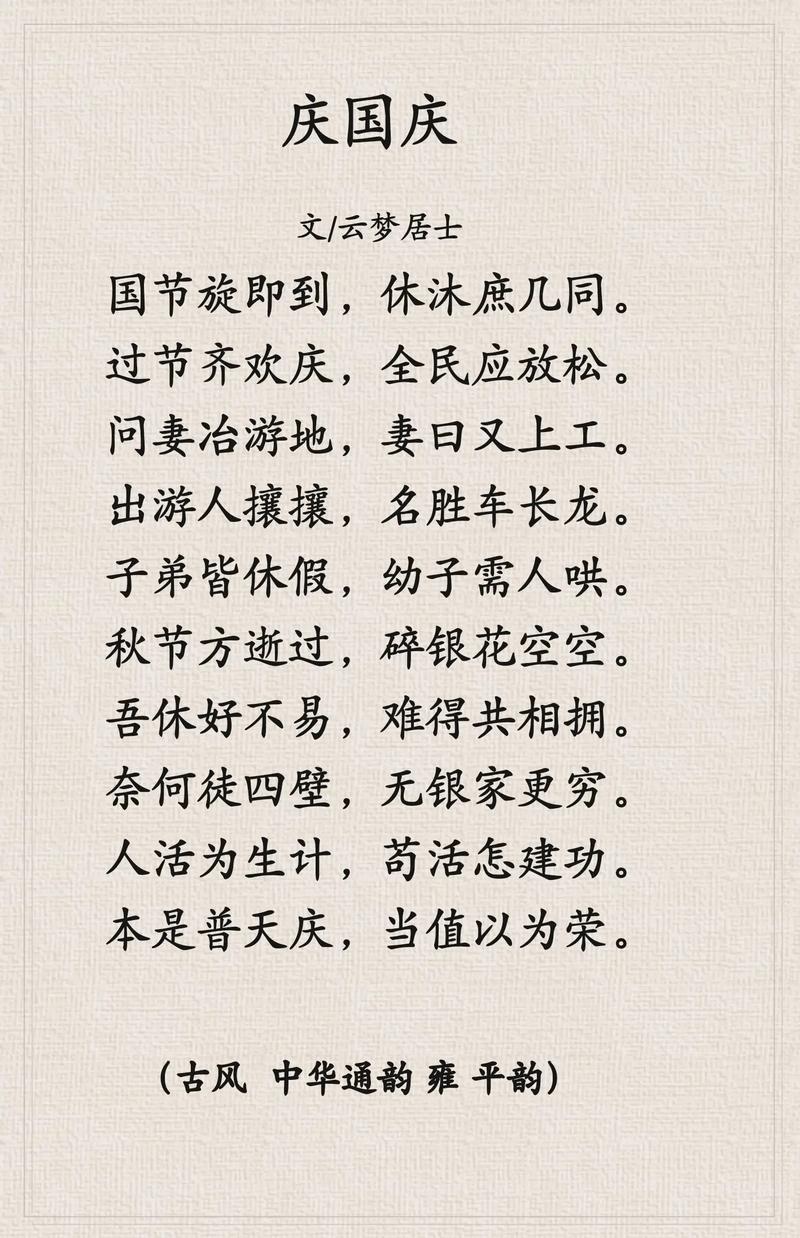 庆国庆
文/云梦居士
国节旋即到，休沐庶几同。
过节齐欢庆，全民应放松。
问妻冶游地，妻曰又上工。
出游人攘攘，名胜车长龙。
子弟皆休假，幼子需人哄。
秋节方逝过，碎银花空空。
吾休好不易，难得共相拥。
奈何徒四壁，无银家更穷。
人活为生计，苟活怎建功。
本是普天庆，当值以为荣。
（古风 中华通韵 雍 平韵）